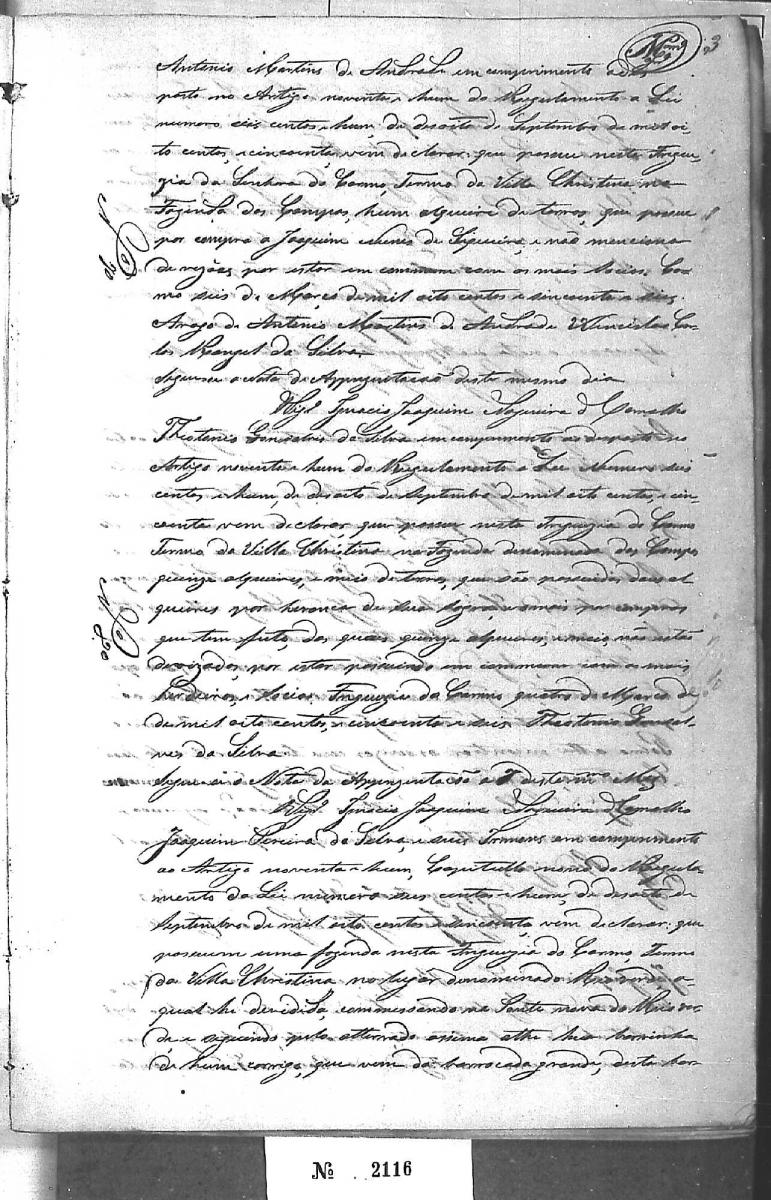 3
Antonio Martins de Andrade em comprimento ao dis
posto no Artigo noventa e hum do Regulamento a Lei
numero seis centos e hum de desoito de Septembro de mil oi
to centos, e cincoenta, vem declarar que possue nesta Fregue
zia da Senhora do Carmo, Termo da Villa Christina na
Fazenda dos Campos, hum alqueire de terras, que possue
por compra a Joaquim Nunes de Siqueira, e não menciona
por estar em commum com os mais Socios. Car
mo seis de Março de mil oito centos e sincoenta e seis.
Arogo de Antonio Martins de Andrade Winceslao Car
los Rangel da Silva
Segue-se a Nota da Appresentacão deste mesmo dia
Vigr.º Ignacio Joaquim Nogueira d Carvalho
Theotonio Gonsalves da Silva em comprimento ao desposto no
Artigo noventa e hum do Regulamento a Lei Numero seis
centos e hum, de desoito de Septembro de mil oito centos, e cin
coenta vem declarar, que possue nesta Freguezia do Carmo
Termo da Villa Christina na Fazenda denominada dos Campos
quinze alqueires, e meio de terras, que são possuidas, dous al
queires por herança de sua sogra, e o mais por compras
que tem feito, das quaes quinze alqueires, e meio, não estão
devizados, por estar possuindo em commum com os mais
herdeiros, e Socios. Freguezia do Carmo quatro de Marco de
de mil oito centos, e cincoenta e seis Theotonio Gonsal
ves da Silva
Segue-se a Nota da Appresentacão a 7 deste m.mo Mez
Vigr.º Ignacio Joaquim Nogueira d Carvalho
Joaquim Pereira da Silva, e seus Irmaons em comprimento
ao Artigo noventa e hum, Capitullo nono do Regula
mento da Lei numero seis centos e hum, de desoito de
Septembro de mil oito centos e sincoenta, vem declarar: que
possuem uma fazenda nesta Freguezia do Carmo Termo
da Villa Christina no lugar denominado Rio verde a
qual he devidida, commessando na Ponte nova do Rio ver
de e seguindo pelo atterrado assima athe hua barrinha
de hum corrigo, que vem da barrocada grande, desta bar
Nº 2116